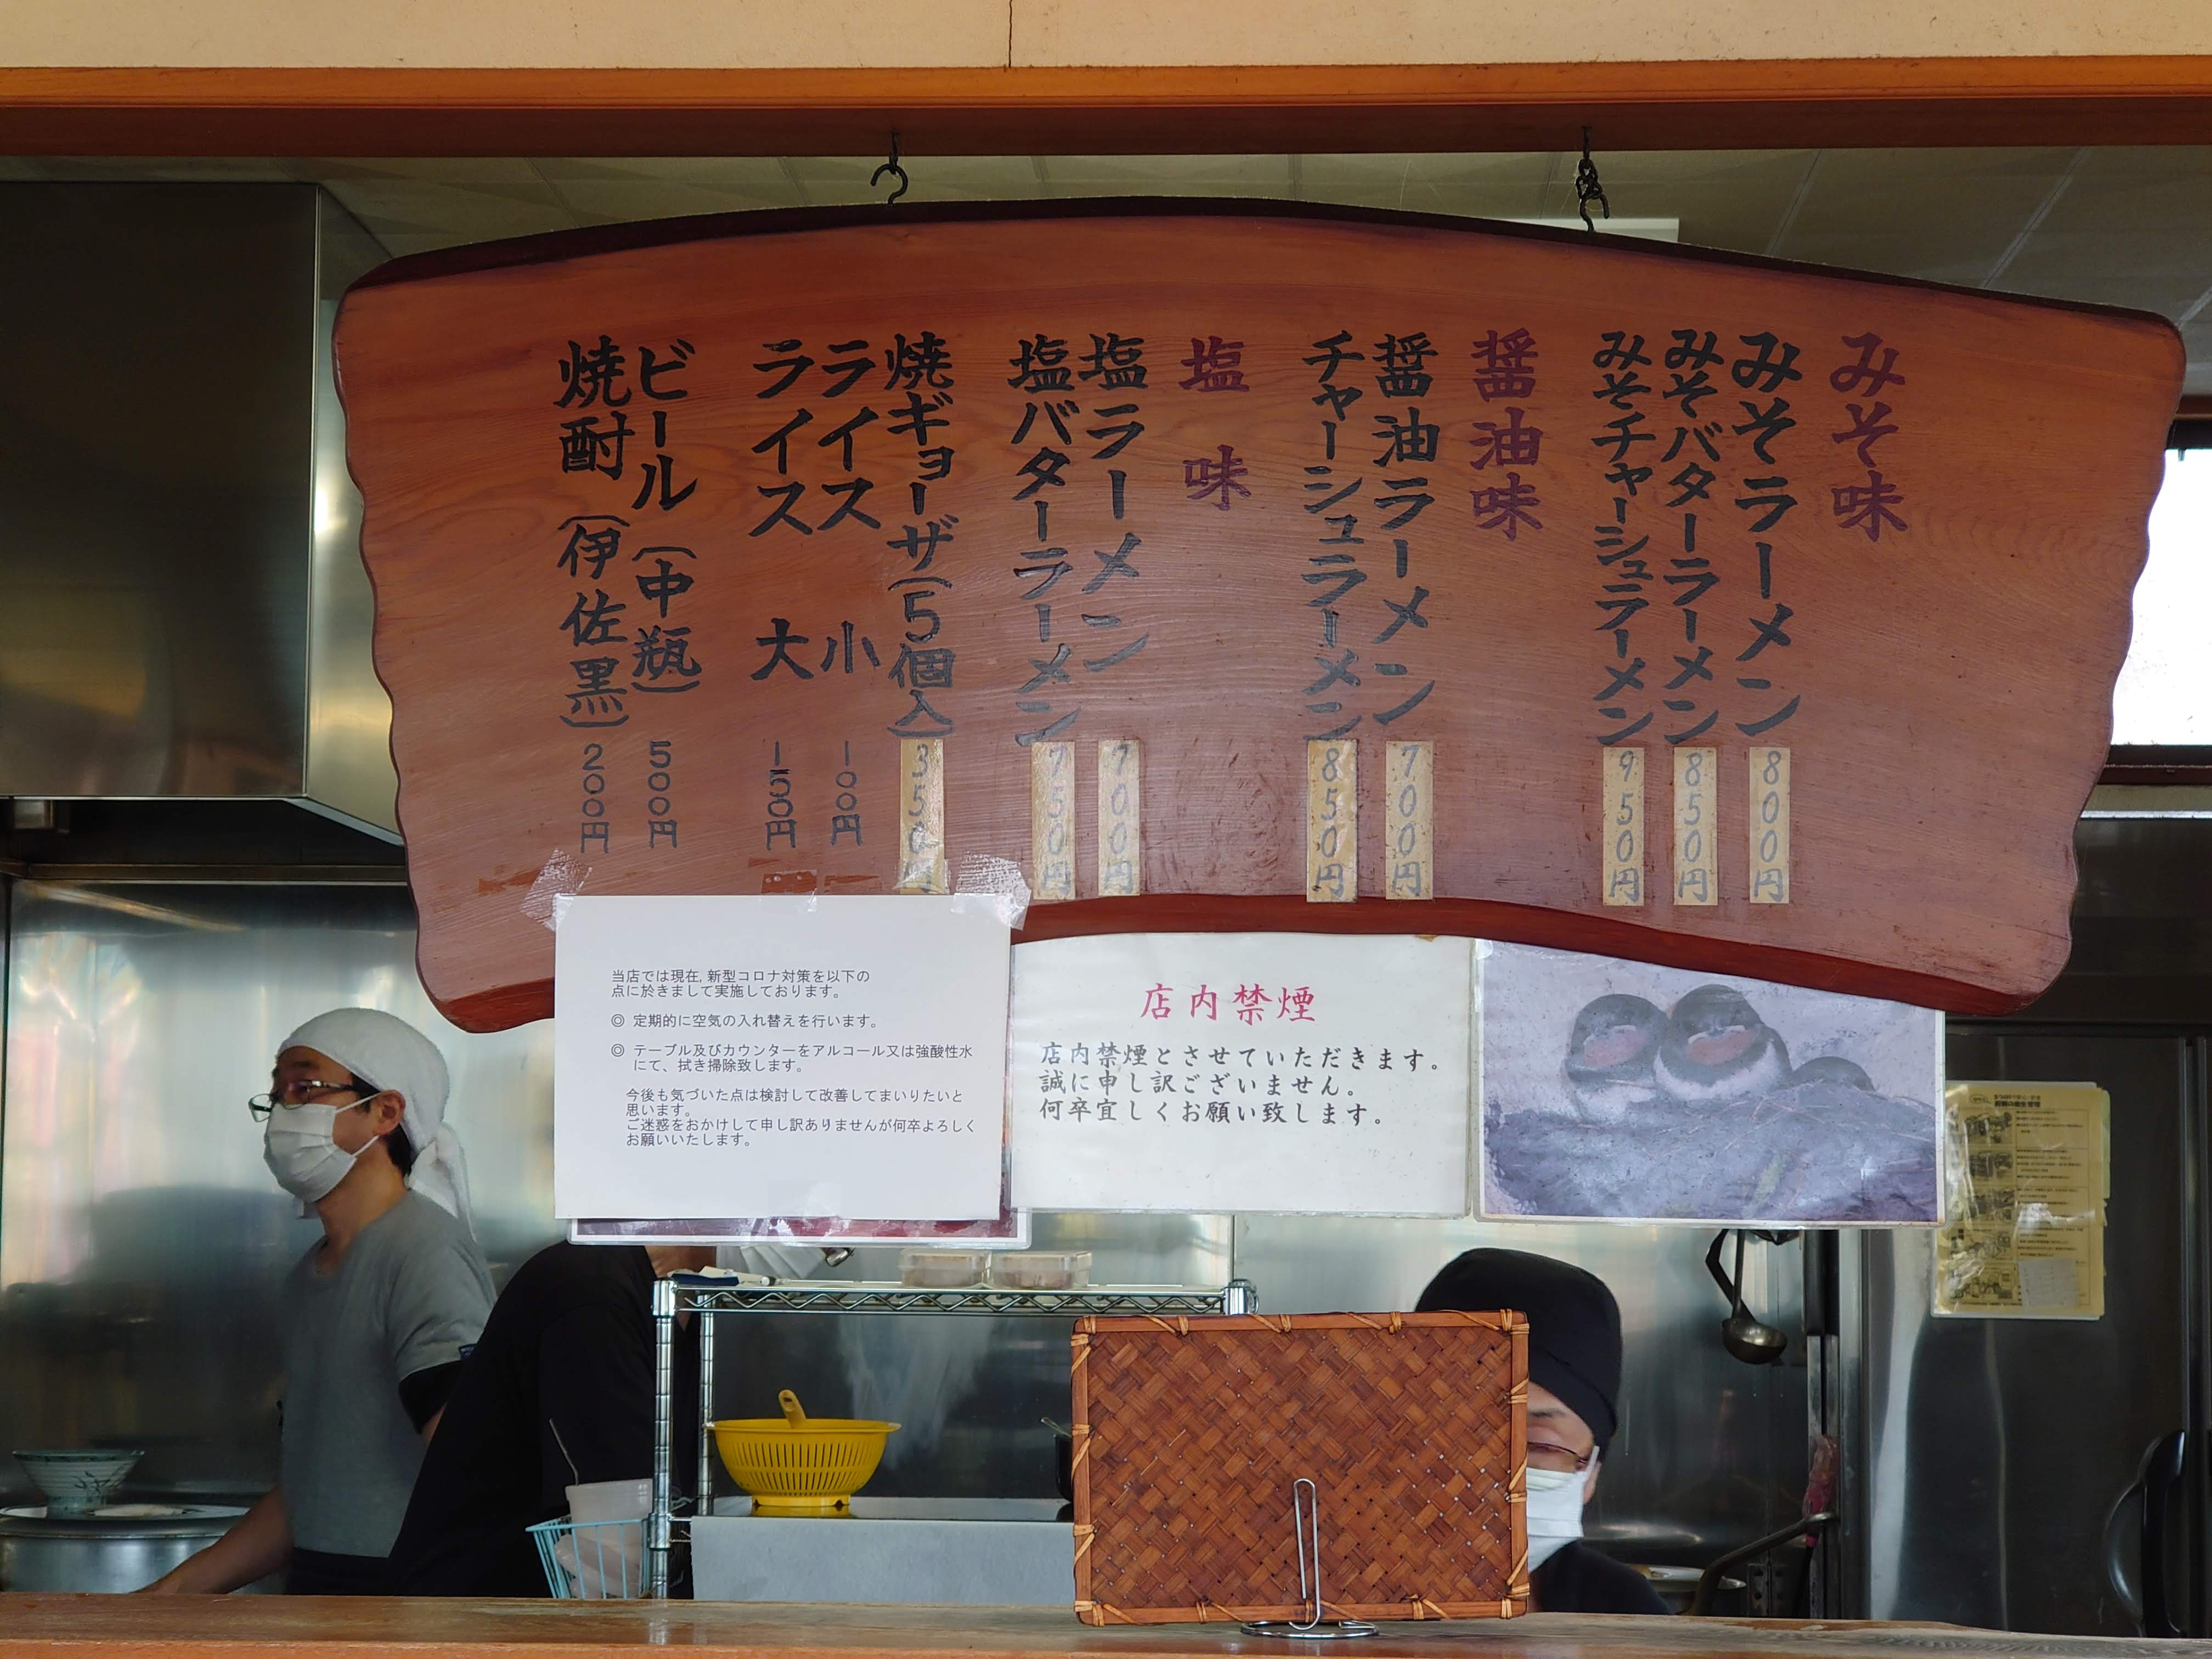 みそ味
みそラーメン 800円
みそバターラーメン 850円
みそチャーシュラーメン 950円
醤油味
醤油ラーメン 700円
チャーシュラーメン 850円
塩味
塩ラーメン 700円
塩バターラーメン 750円
焼ギョーザ(5個入) 350
ライス 小 100円
ライス 大 150円
ビール(中瓶) 500円
焼酎(伊佐黒) 200円
当店では現在,新型コロナ対策を以下の
点に於きまして実施しております。
◎ 定期的に空気の入れ替えを行います。
◎ テーブル及びカウンターをアルコール又は強酸性水
にて、拭き掃除致します。
今後も気づいた点は検討して改善してまいりたいと
思います。
ご迷惑をおかけして申し訳ありませんが何卒よろしく
お願いいたします。
店内禁煙
店内禁煙とさせていただきます。
誠に申し訳ございません。
何卒宜しくお願い致します。